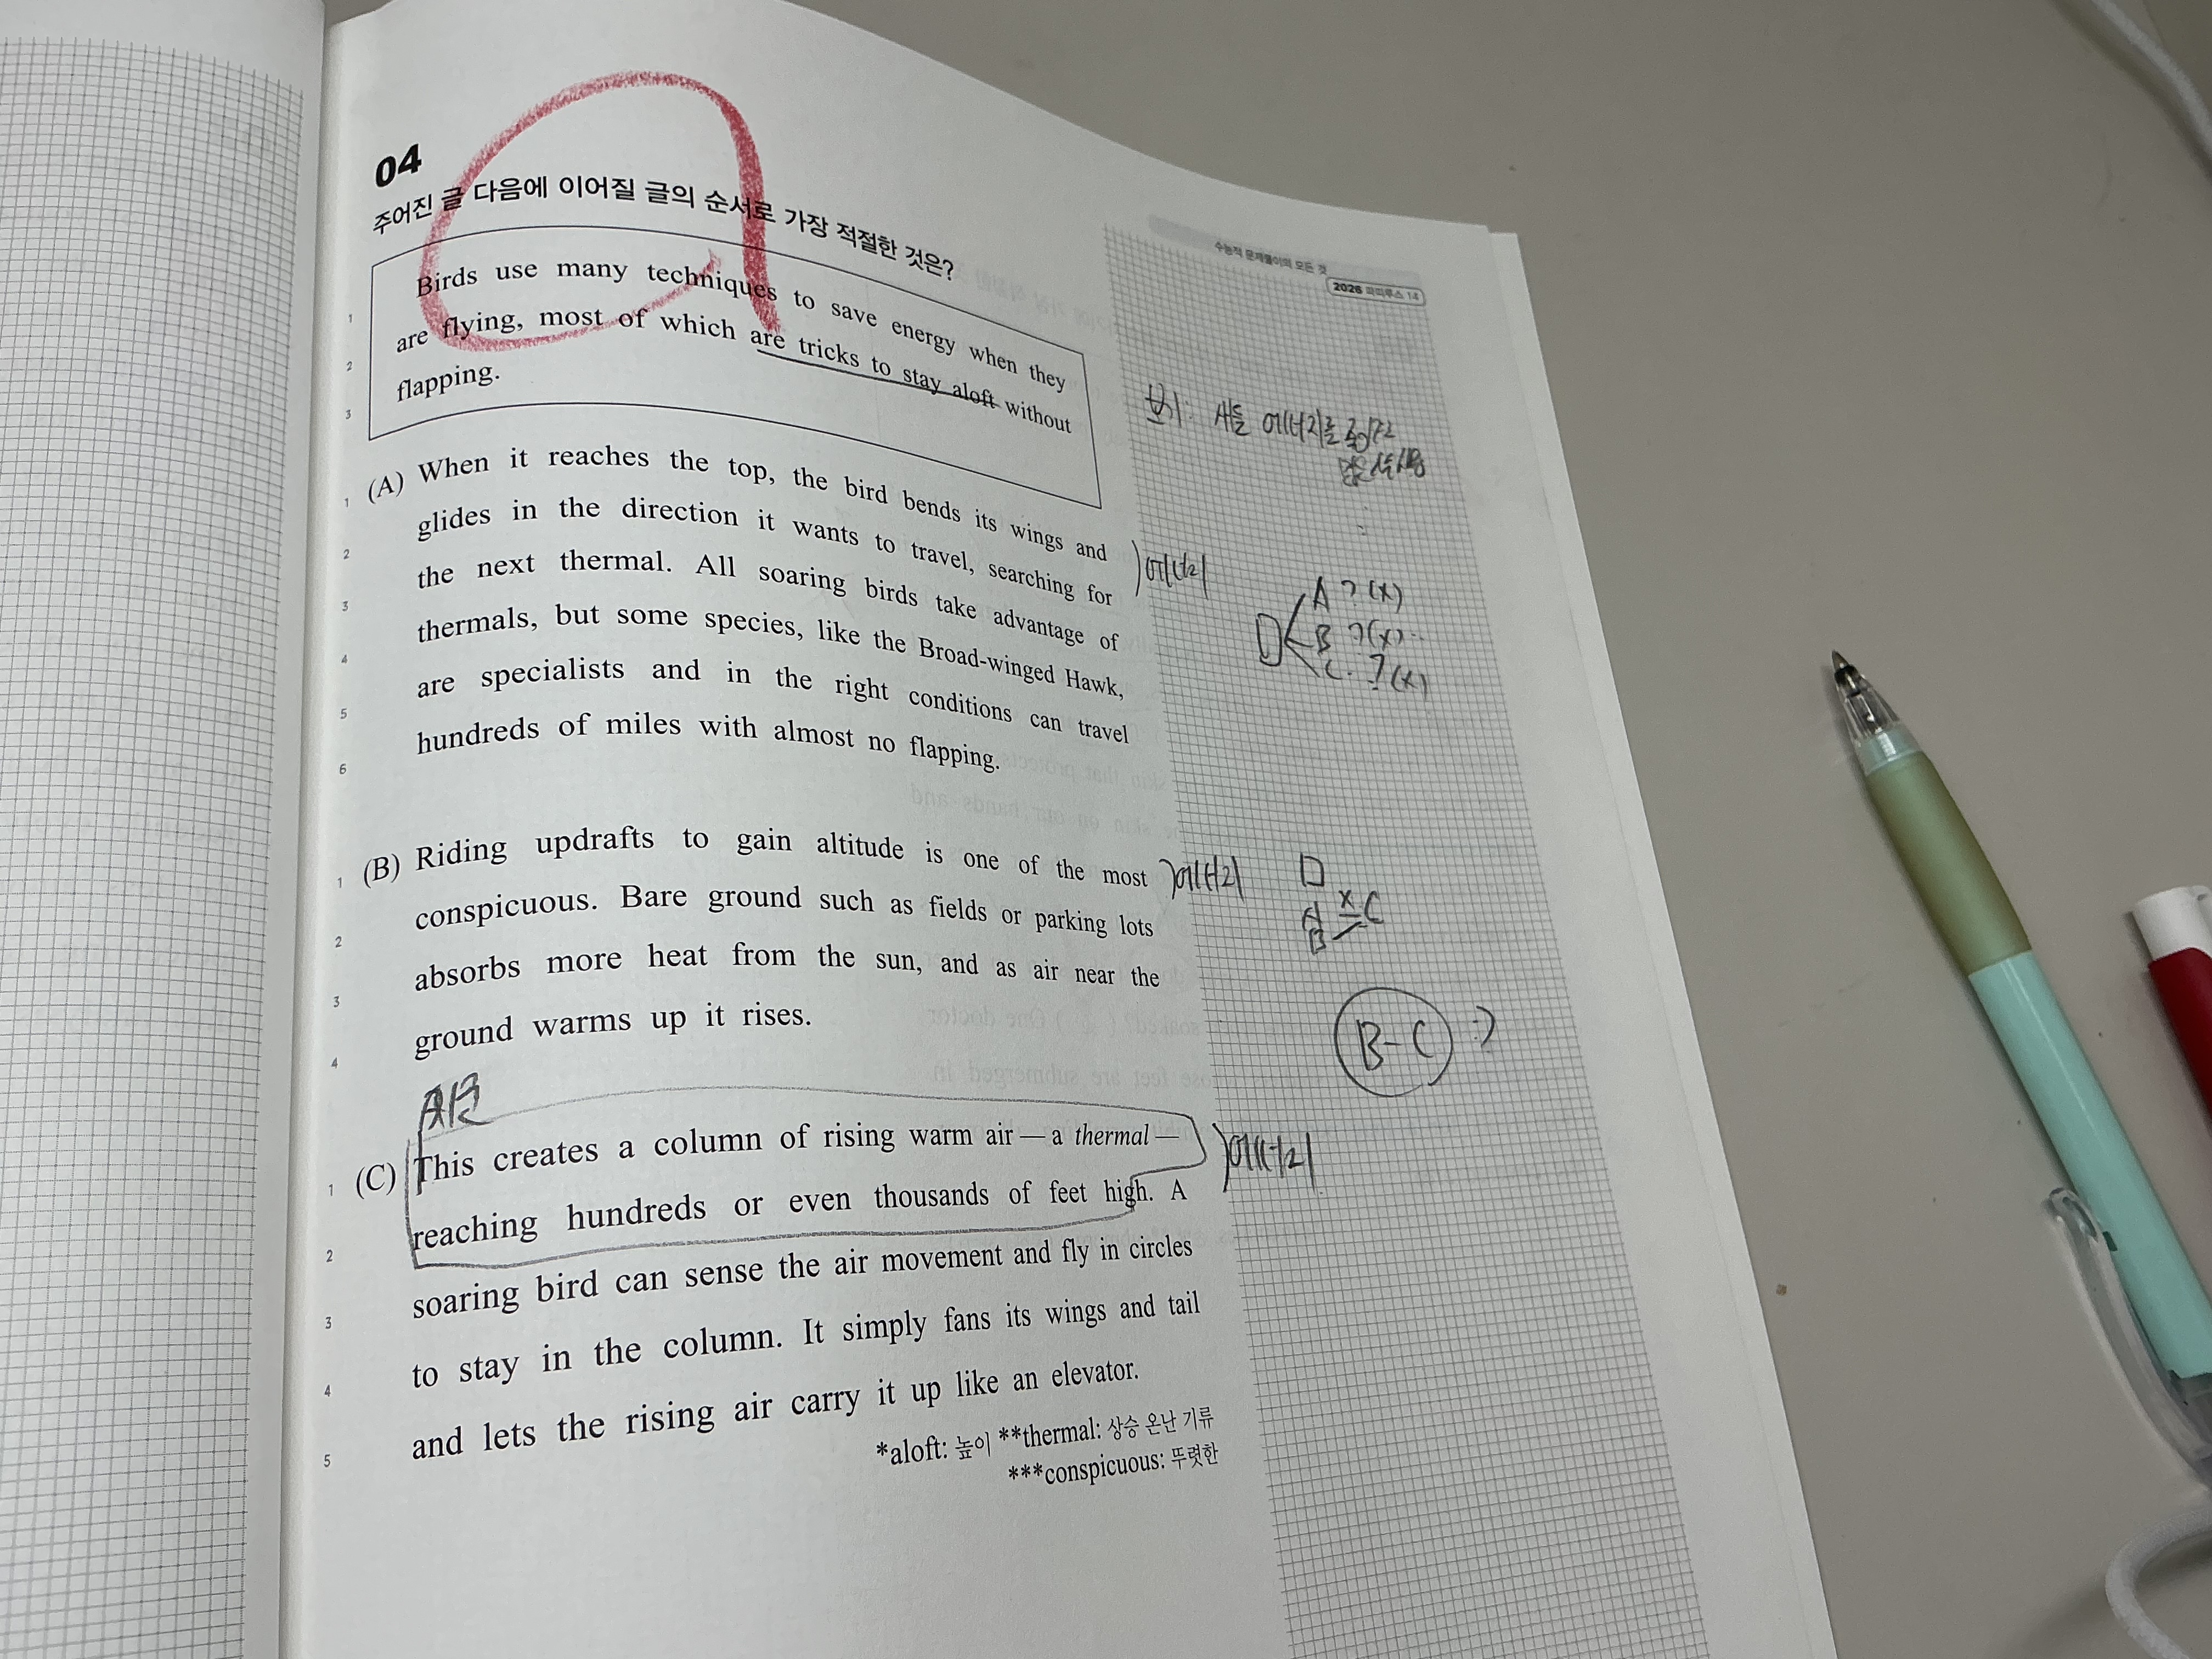 04
주어진 글 다음에 이어질 글의 순서로 가장 적절한 것은?
수능적 문제풀이의 모든 것
2026 파피루스 14
1 Birds use many techniques to save energy when they
2 are flying, most of which are tricks to stay aloft without
3 flapping.
보기: 새들 에너지를
1 (A) When it reaches the top, the bird bends its wings and
2 glides in the direction it wants to travel, searching for
3 the next thermal. All soaring birds take advantage of
4 thermals, but some species, like the Broad-winged Hawk,
5 are specialists and in the right conditions can travel
6 hundreds of miles with almost no flapping.
A ? (x)
B ? (x)
C ? (x)
1 (B) Riding updrafts to gain altitude is one of the most
2 conspicuous. Bare ground such as fields or parking lots
3 absorbs more heat from the sun, and as air near the
4 ground warms up it rises.
A x C
B
B-C
AB
1 (C) This creates a column of rising warm air — a thermal —
2 reaching hundreds or even thousands of feet high. A
3 soaring bird can sense the air movement and fly in circles
4 to stay in the column. It simply fans its wings and tail
5 and lets the rising air carry it up like an elevator.
*aloft: 높이 **thermal: 상승 온난 기류
***conspicuous: 뚜렷한